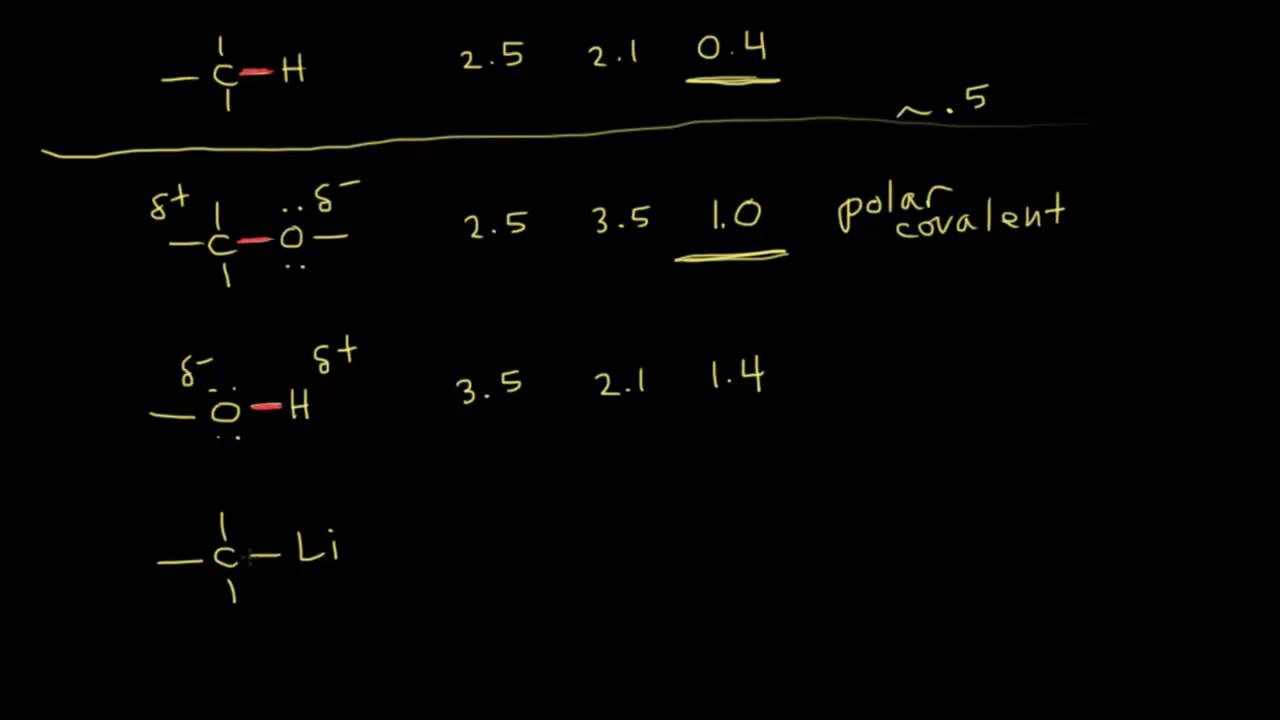 C H 2.5 2.1 0.4
~.5
δ+ δ-
C O 2.5 3.5 1.0 polar
covalent
δ- δ+
O H 3.5 2.1 1.4
C Li